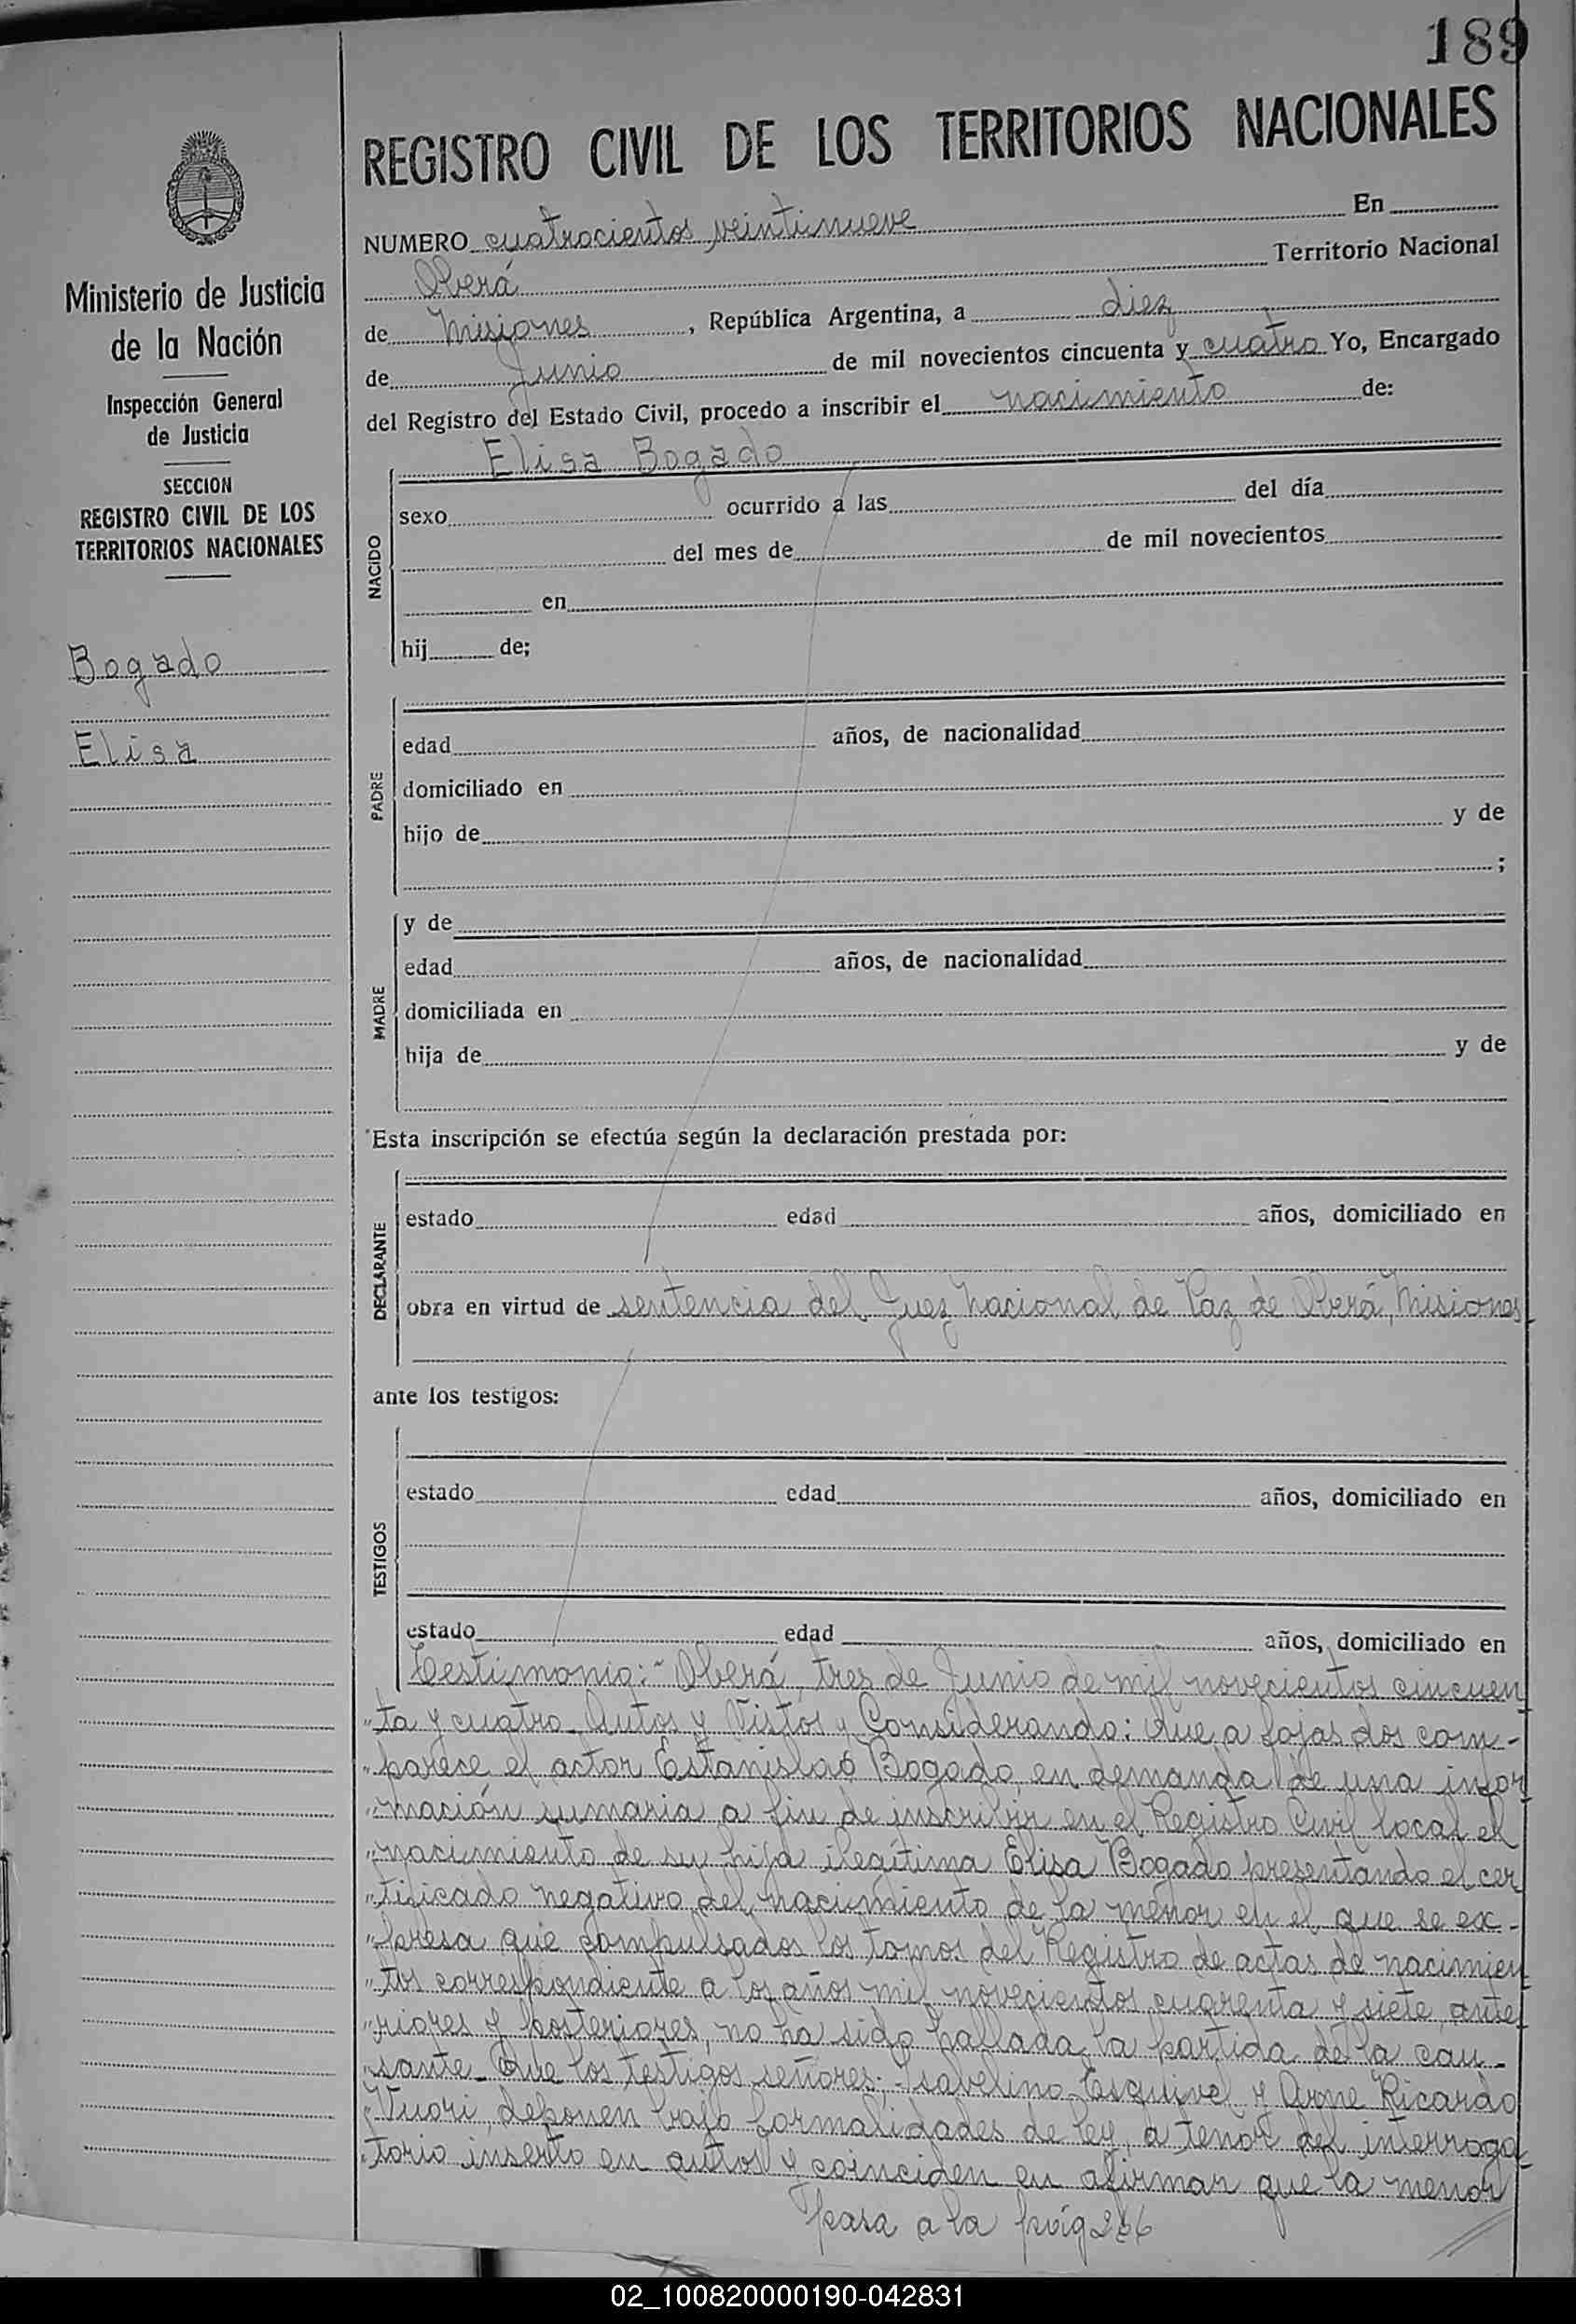 189
REGISTRO CIVIL DE LOS TERRITORIOS NACIONALES
Ministerio de Justicia
de la Nación
Inspección General
de Justicia
SECCION
REGISTRO CIVIL DE LOS
TERRITORIOS NACIONALES
Bogado
Elisa
NUMERO cuatrocientos veintinueve En
Oberá Territorio Nacional
de Misiones, República Argentina, a diez
de Junio de mil novecientos cincuenta y cuatro Yo, Encargado
del Registro del Estado Civil, procedo a inscribir el nacimiento de:
NACIDO
Elisa Bogado
sexo ocurrido a las del día
del mes de de mil novecientos
en
hij de;
PADRE
edad años, de nacionalidad
domiciliado en
hijo de y de
;
MADRE
y de
edad años, de nacionalidad
domiciliada en
hija de y de
Esta inscripción se efectúa según la declaración prestada por:
DECLARANTE
estado edad años, domiciliado en
obra en virtud de sentencia del Juez Nacional de Paz de Oberá, Misiones
ante los testigos:
TESTIGOS
estado edad años, domiciliado en
estado edad años, domiciliado en
Testimonio:- Oberá, tres de Junio de mil novecientos cincuen
"ta y cuatro. Autos y Vistos y Considerando: Que a fojas dos com-
"parece el actor Estanislao Bogado, en demanda de una infor
"mación sumaria a fin de inscribir en el Registro Civil local el
"nacimiento de su hija ilegítima Elisa Bogado presentando el cer
"tificado negativo del nacimiento de la menor en el que se ex-
"presa que compulsados los tomos del Registro de actas de nacimien
"tos correspondiente a los años mil novecientos cuarenta y siete, ante
"riores y posteriores, no ha sido hallada la partida de la cau-
"sante. Que los testigos señores: Isabelino Esquivel y Arme Ricardo
"Vuori, deponen bajo formalidades de ley, a tenor del interroga
"torio inserto en autos y coinciden en afirmar que la menor
pasa a la pág
02_100820000190-042831